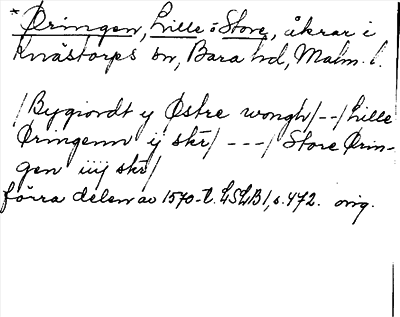 * Øringen, Lille o Store, åkrar i
Knästorps sn, Bara hd, Malm. l.
/Bygiordt ij Østre wongh/--/Lille
Øringenn ij skr/ ---/ Store Ørin-
gen iiij skr/
förra delen av 1570-t. LSLB 1, s. 472. orig.